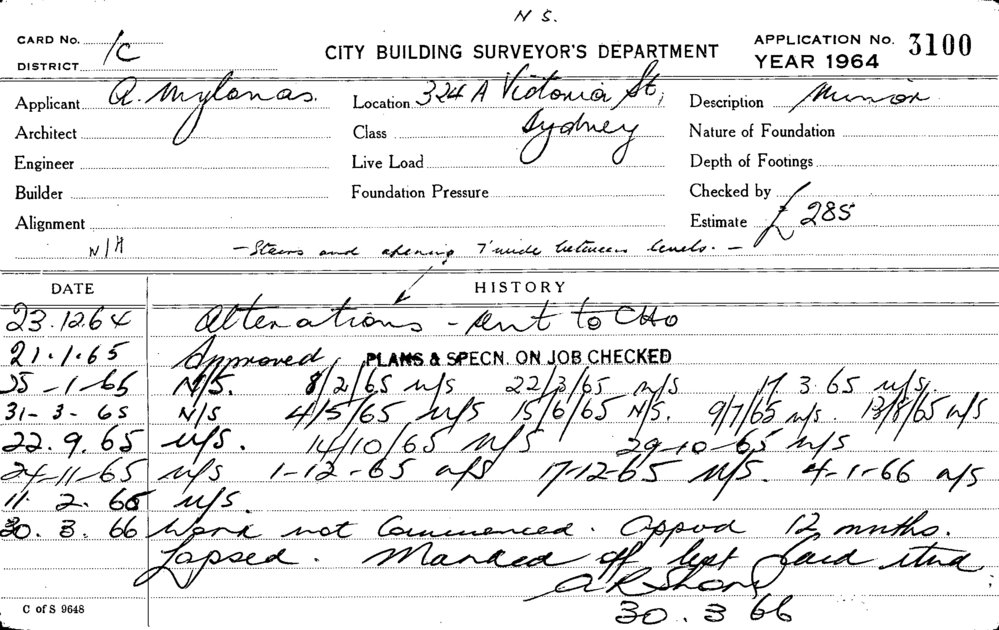 N S.
CARD No. 1C
DISTRICT
CITY BUILDING SURVEYOR'S DEPARTMENT
APPLICATION No. 3100
YEAR 1964
Applicant A. Mylonas. Location 324A Victoria St, Description Minor
Architect Class Sydney Nature of Foundation
Engineer Live Load Depth of Footings
Builder Foundation Pressure Checked by
Alignment Estimate £285
N/A - Stairs and opening 7' wide between levels. -
DATE HISTORY
23.12.64 Alterations - sent to CHO
21.1.65 Approved, PLANS & SPECN. ON JOB CHECKED
25-1-65 N/S. 8/2/65 N/S 22/3/65 N/S 17.3.65 N/S.
31-3-65 N/S 4/5/65 N/S 15/6/65 N/S. 9/7/65 N/S. 13/8/65 N/S
22.9.65 N/S. 14/10/65 N/S 29-10-65 N/S
24-11-65 N/S 1-12-65 N/S 17-12-65 N/S. 4-1-66 N/S
11.2.66 N/S.
30.3.66 Work not Commenced. Approd 12 months.
Lapsed. Marked off last Card

30.3.66
C of S 9648